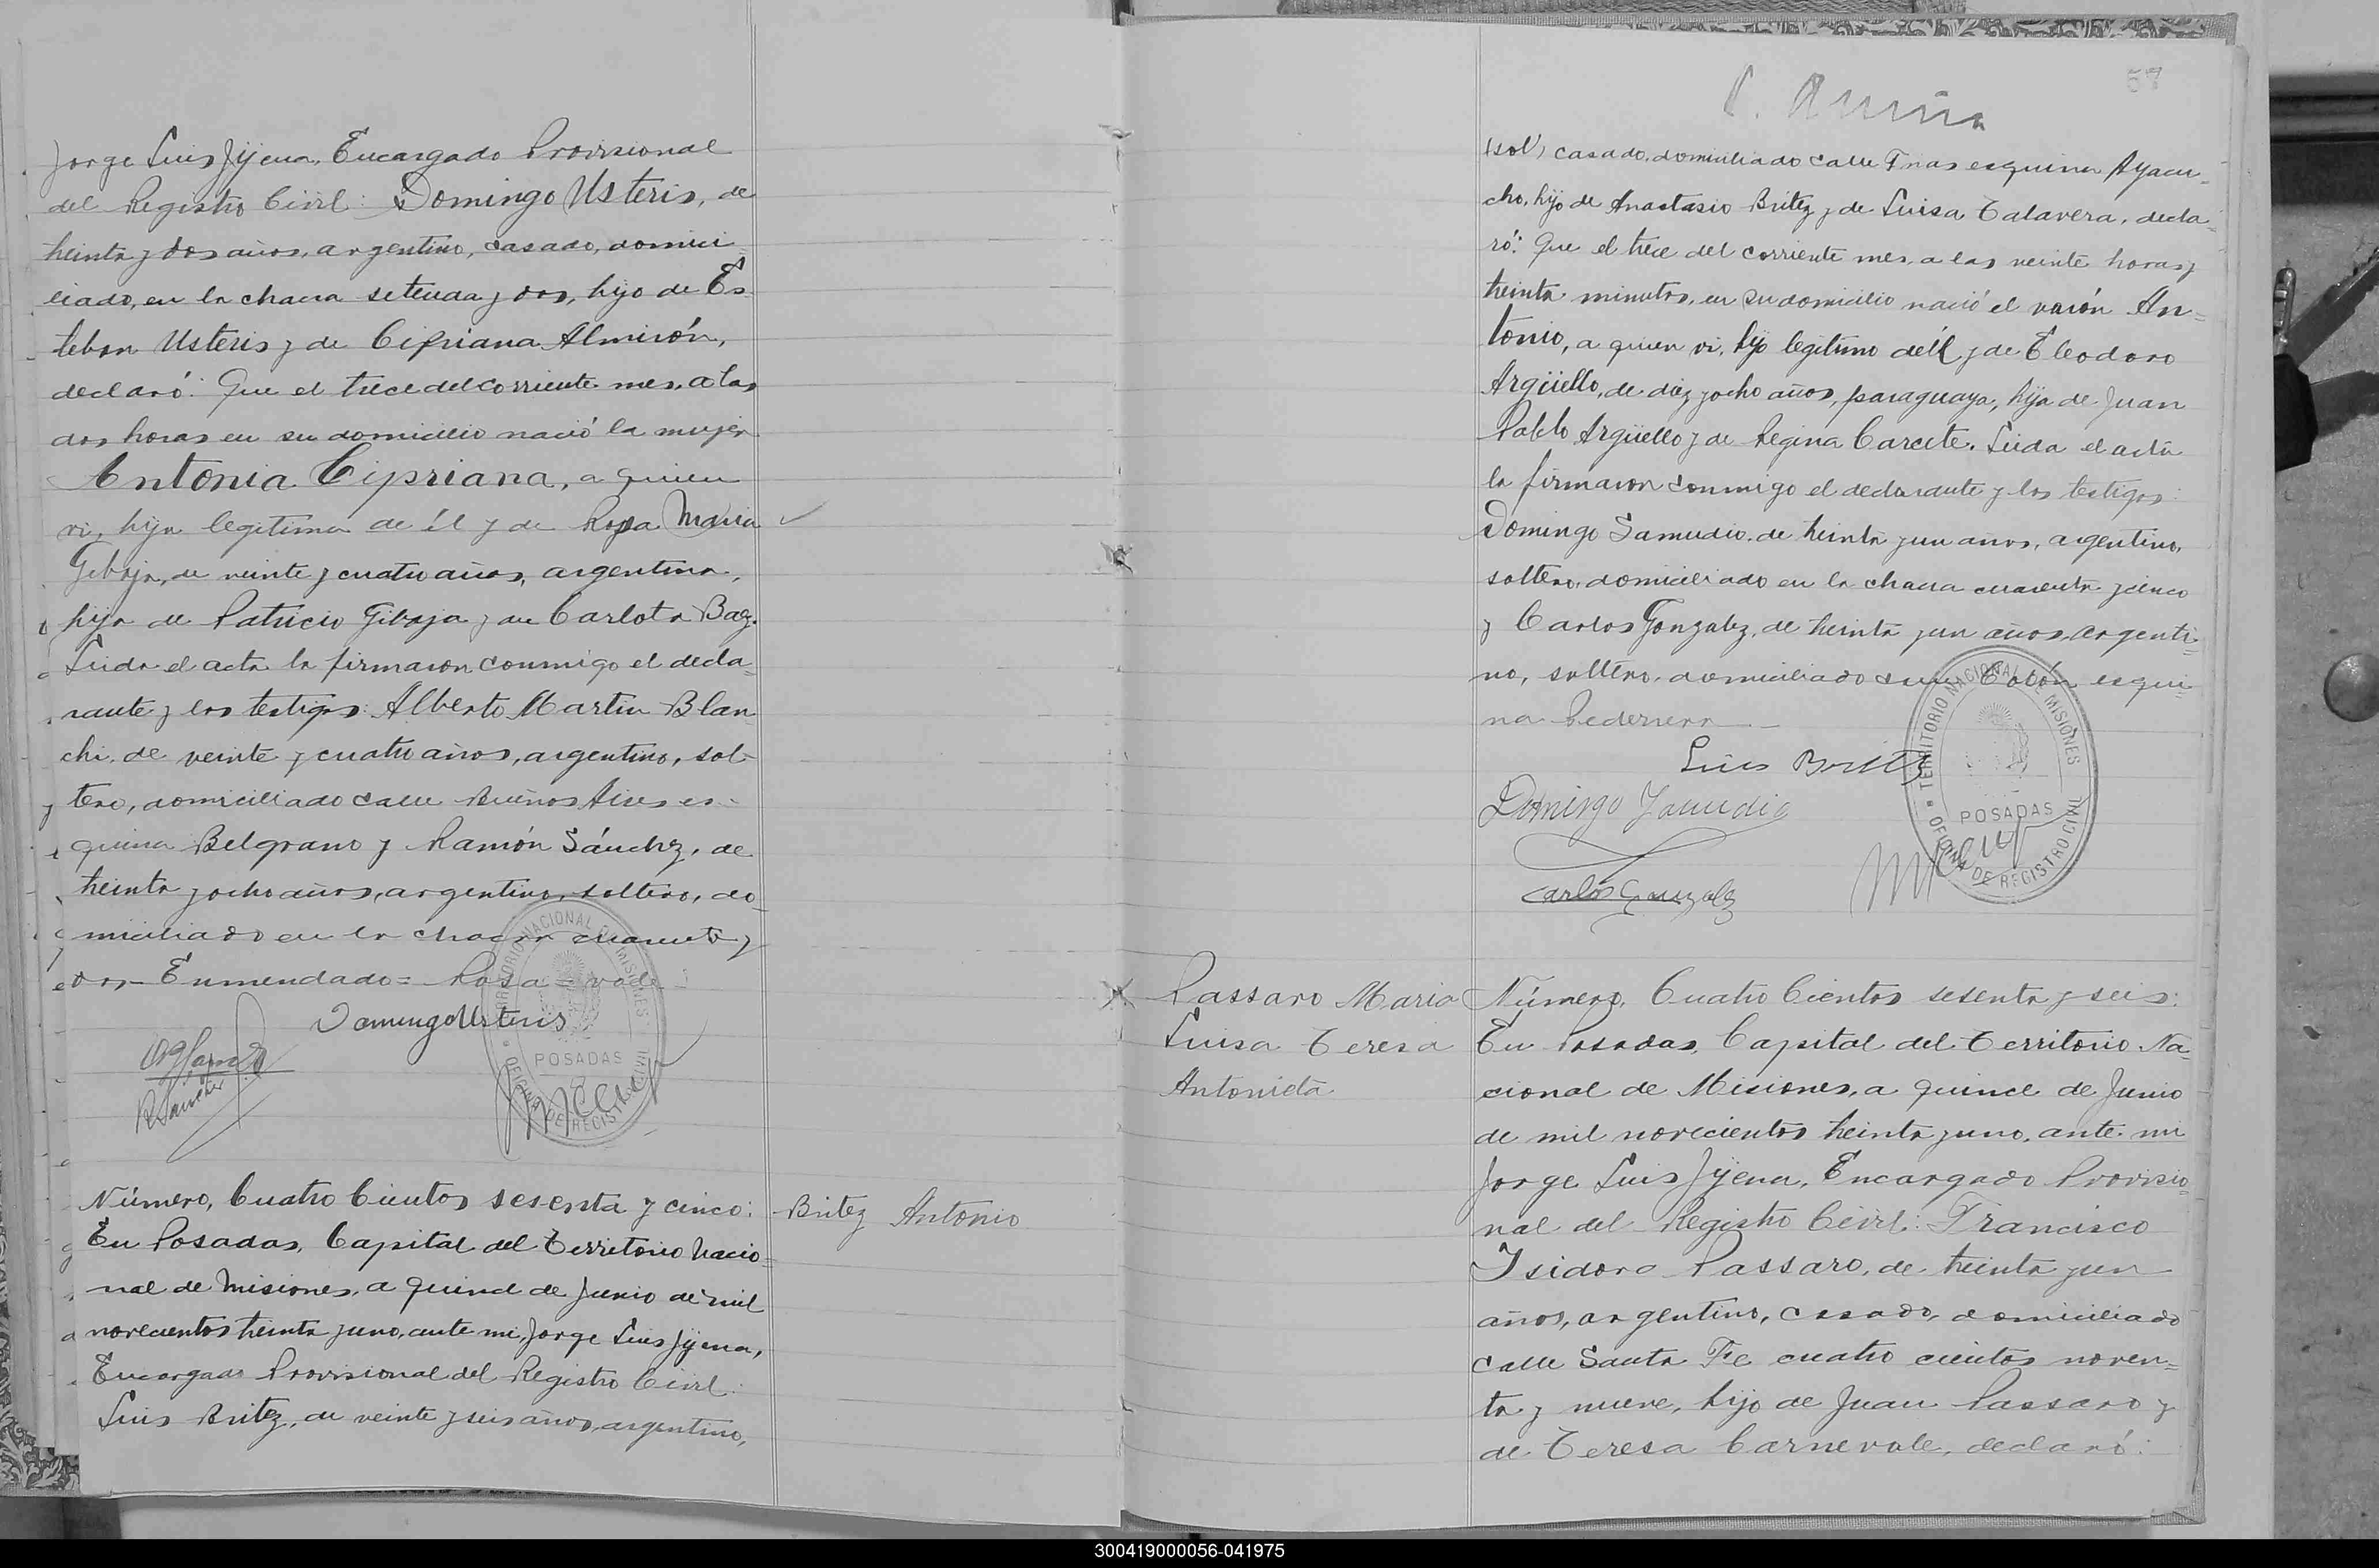 Jorge Luis Jijena, Encargado Provisional
del Registro Civil: Domingo Usteris, de
treinta y dos años, argentino, casado, domici
liado, en la chacra setenda y dos, hijo de Es
teban Usteris y de Cipriana Almirón,
declaró: Que el trece del corriente mes, a las
dos horas en su domicilio nació la mujer
Antonia Cipriana, a quien
vi, hija legitima de él y de Rosa Maria
Gibaja, de veinte y cuatro años, argentina,
hija de Patricio Gibaja y de Carlota Baez.
Leida el acta la firmaron conmigo el decla=
rante y los testigos: Alberto Martin Blan
chi, de veinte y cuatro años, argentino, sol
tero, domiciliado calle Buenos Aires es-
quina Belgrano y Ramón Sánchez, de
treinta y ocho años, argentino, soltero, do
miciliado en la chacra cuarenta y
dos - Enmendado = Rosa = vale
Domingo Usteris
R Sanchez
TERRITORIO NACIONAL DE MISIONES
POSADAS
OFICINA DE REGISTRO CIVIL
Número, Cuatro Cientos sesenta y cinco:
Britez Antonio
En Posadas, Capital del Territorio Nacio=
nal de Misiones, a quince de Junio de mil
novecientos treinta y uno, ante mi, Jorge Luis Jijena,
Encargado Provisional del Registro Civil:
Luis Britez, de veinte y seis años, argentino,
57
(sol) casado, domiciliado calle Frias esquina Ayacu-
cho, hijo de Anastasio Britez y de Luisa Talavera, decla-
ró: Que el trece del corriente mes, a las veinte horas y
treinta minutos, en su domicilio nació el varón An=
tonio, a quien vi, hijo legitimo de él y de Eleodora
Argüello, de diez y ocho años, paraguaya, hija de Juan
Pablo Argüello y de Regina Carcete. Leida el acta
la firmaron conmigo el declarante y los testigos:
Domingo Samudio, de treinta y un años, argentino,
soltero, domiciliado en la chacra cuarenta y cinco
y Carlos Gonzalez, de treinta y un años, argenti=
no, soltero, domiciliado calle Colón esqui=
na Pedernera -
Luis Britez
Domingo Samudio
Carlos Gonzalez
TERRITORIO NACIONAL DE MISIONES
POSADAS
OFICINA DE REGISTRO CIVIL
Passaro Maria
Luisa Teresa
Antonieta
Número, Cuatro Cientos sesenta y seis:
En Posadas, Capital del Territorio Na=
cional de Misiones, a quince de Junio
de mil novecientos treinta y uno, ante mi
Jorge Luis Jijena, Encargado Provisio=
nal del Registro Civil: Francisco
Isidoro Passaro, de treinta y un
años, argentino, casado, domiciliado
calle Santa Fe cuatro cientos noven=
ta y nueve, hijo de Juan Passaro y
de Teresa Carnevale, declaró:
300419000056-041975